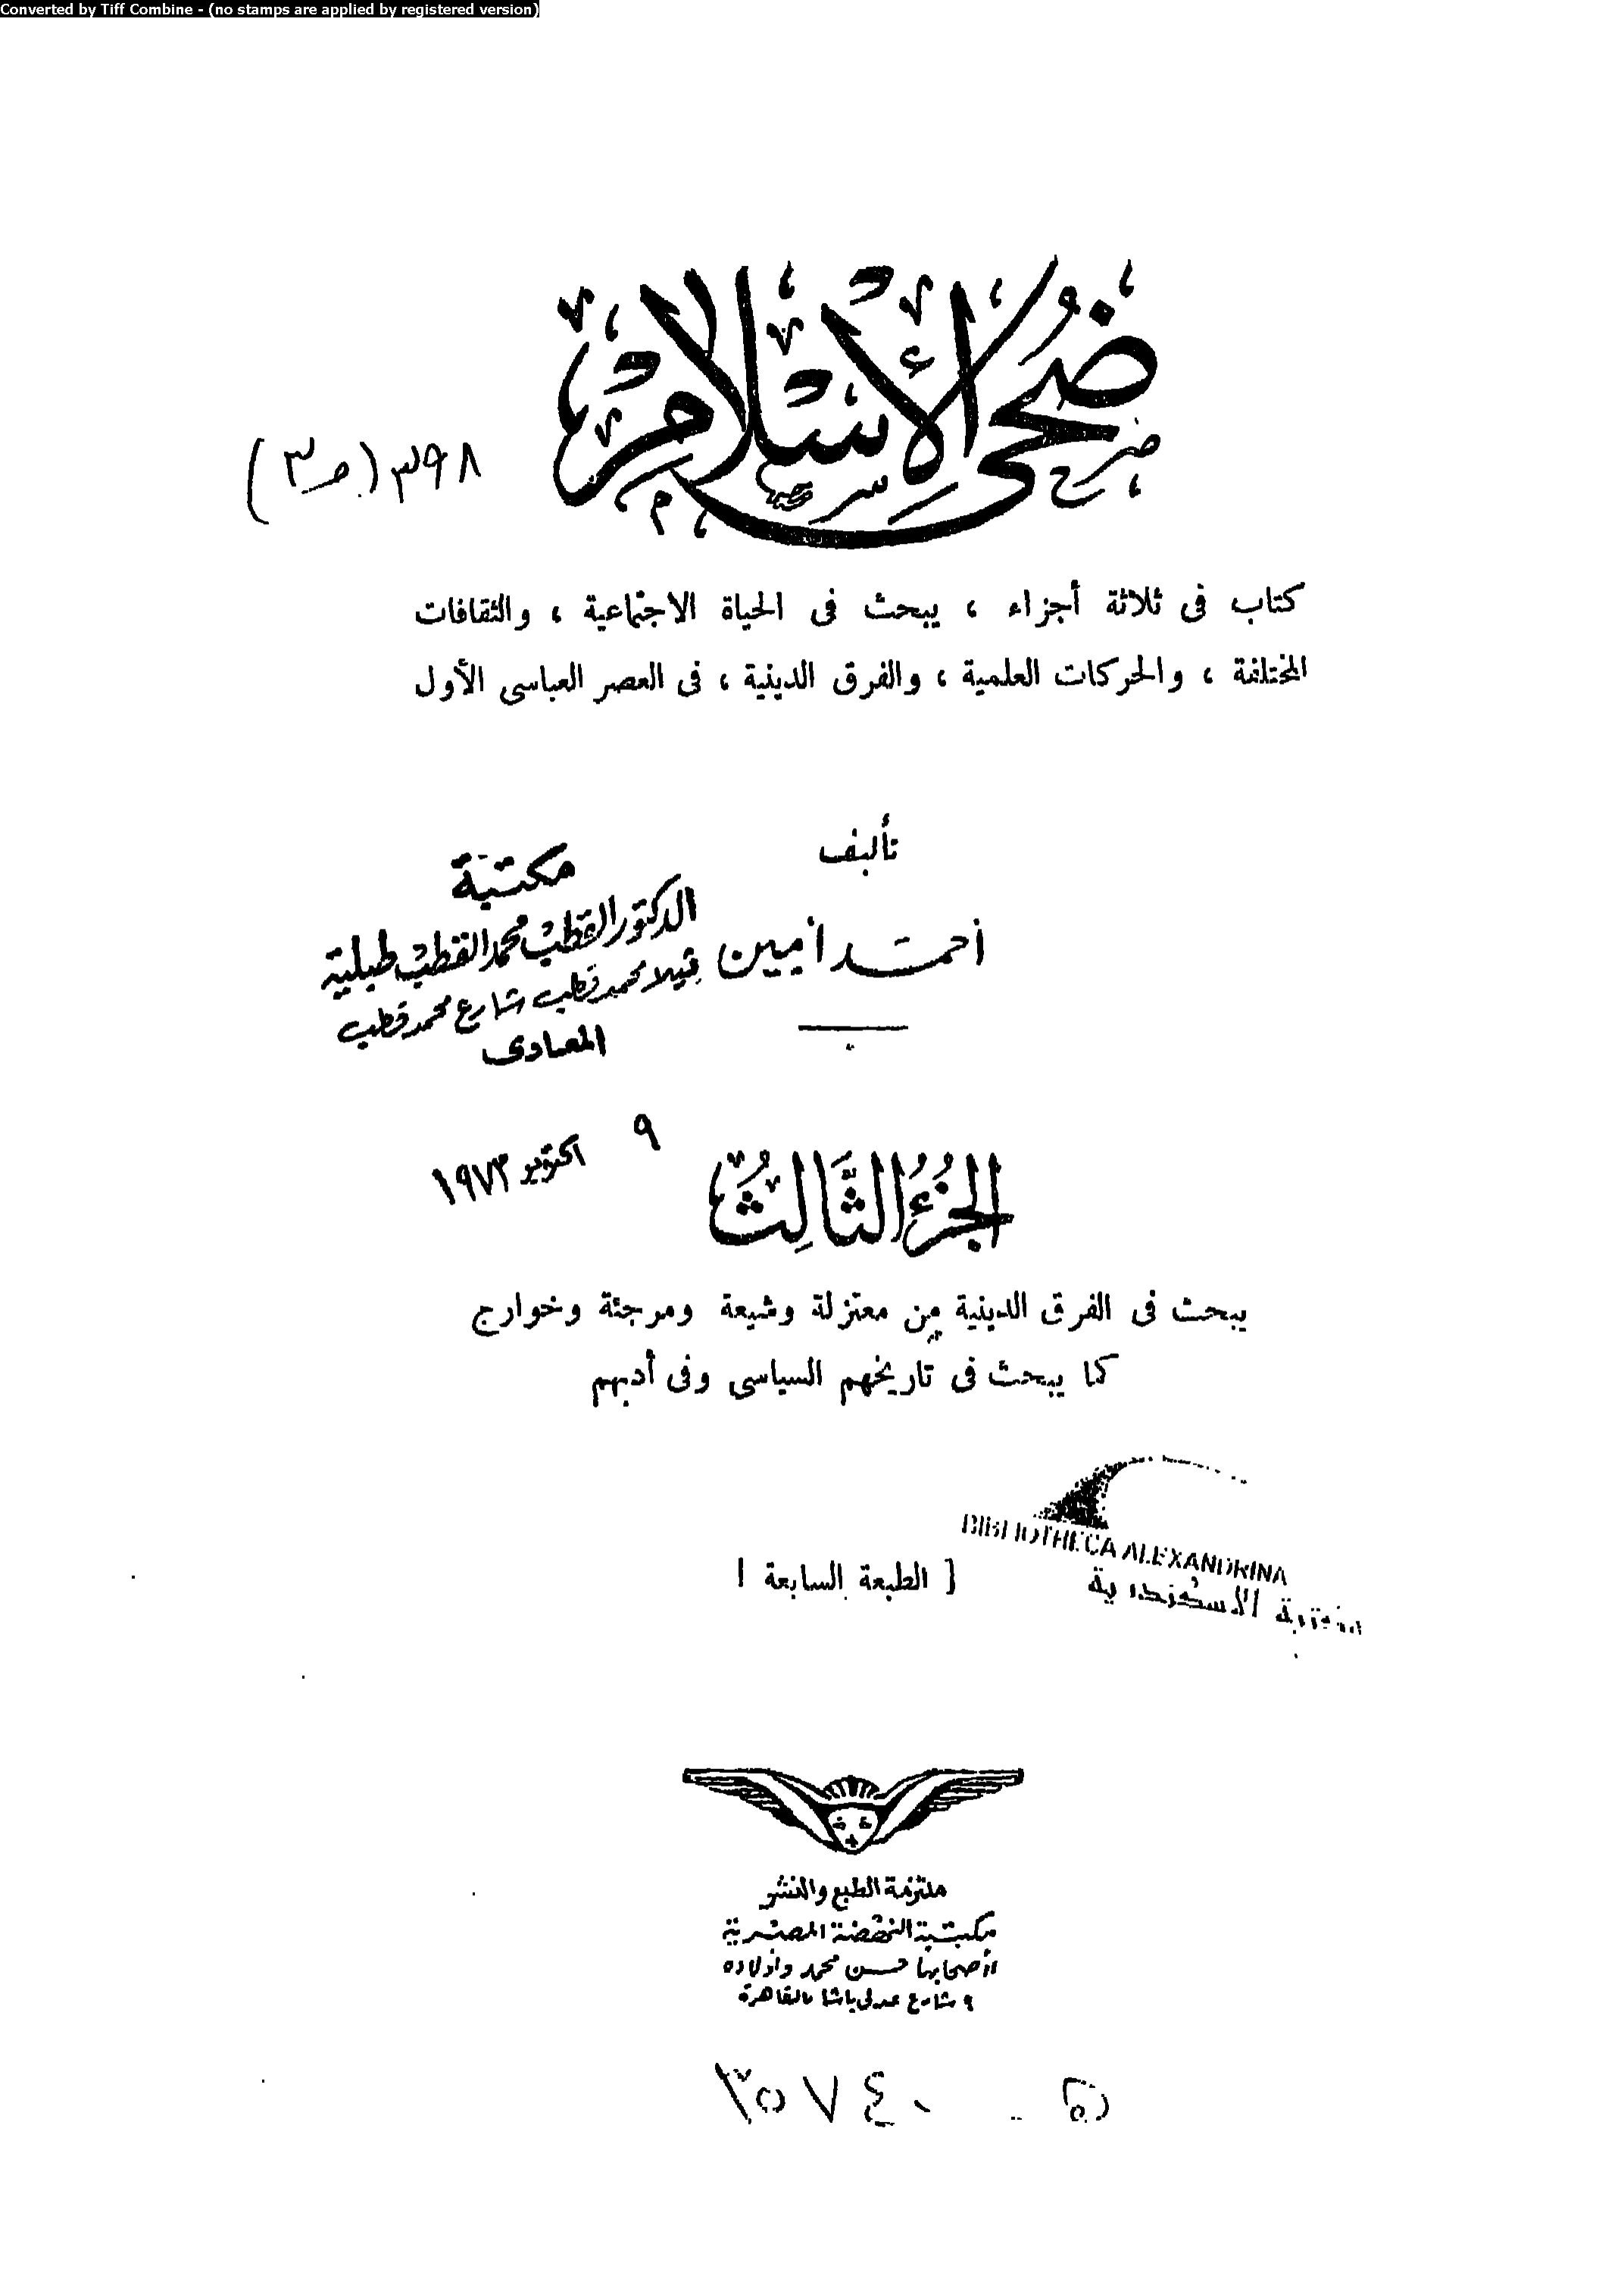 Converted by Tiff Combine - (no stamps are applied by registered version)
ضُحَى الإِسْلَام
٣٩٨ (ص٣)
كتاب فى ثلاثة أجزاء ، يبحث فى الحياة الاجتماعية ، والثقافات
المختلفة ، والحركات العلمية ، والفرق الدينية ، فى العصر العباسى الأول
تأليف
أحمد أمين
مكتبة
الدكتور القطب محمد القطب طبلية
فيلا محمد قطب شارع محمد قطب
المعادى
٩ اكتوبر ١٩٧٣
الجُزْءُ الثَّالِثُ
يبحث فى الفرق الدينية من معتزلة وشيعة ومرجئة وخوارج
كما يبحث فى تاريخهم السياسى وفى أدبهم
BIBLIOTHECA ALEXANDRINA
مكتبة الاسكندرية
[ الطبعة السابعة ]
ملتزمة الطبع والنشر
مكتبة النهضة المصرية
لأصحابها حسن محمد وأولاده
٩ شارع عدلى باشا بالقاهرة
٣٥٧٤٠